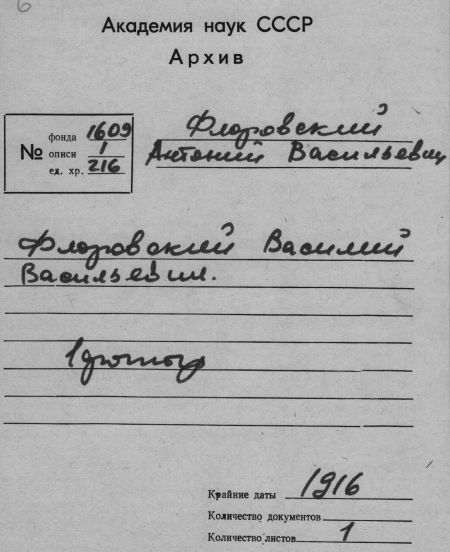 6
Академия наук СССР
Архив
№ фонда 1609
описи 1
ед. хр. 216
Флоровский
Антоний Васильевич
Флоровский Василий
Васильевич.
1 фотогр
Крайние даты 1916
Количество документов
Количество листов 1